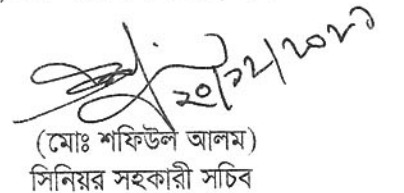 ২০/১২/২০২১
(মোঃ শফিউল আলম)
সিনিয়র সহকারী সচিব